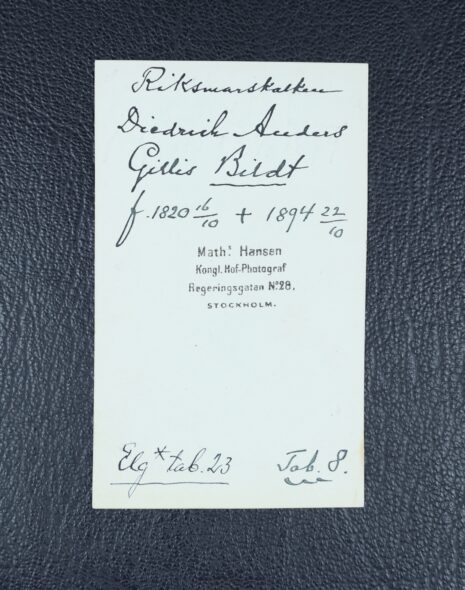 Riksmarskalken
Diedrich Anders
Gillis Bildt
f. 1820 16/10 + 1894 22/10
Math.s Hansen
Kongl. Hof-Photograf
Regeringsgatan No 28.
STOCKHOLM.
Elg* tab. 23 Tab. 8.